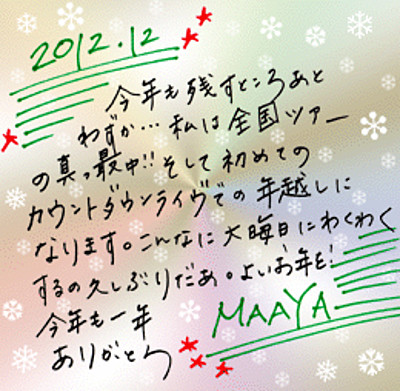 2012.12
今年も残すところあと
わずか…私は全国ツアー
の真っ最中!!そして初めての
カウントダウンライヴでの年越しに
なります。こんなに大晦日にわくわく
するの久しぶりだぁ。よいお年を!
今年も一年
ありがとう
MAAYA